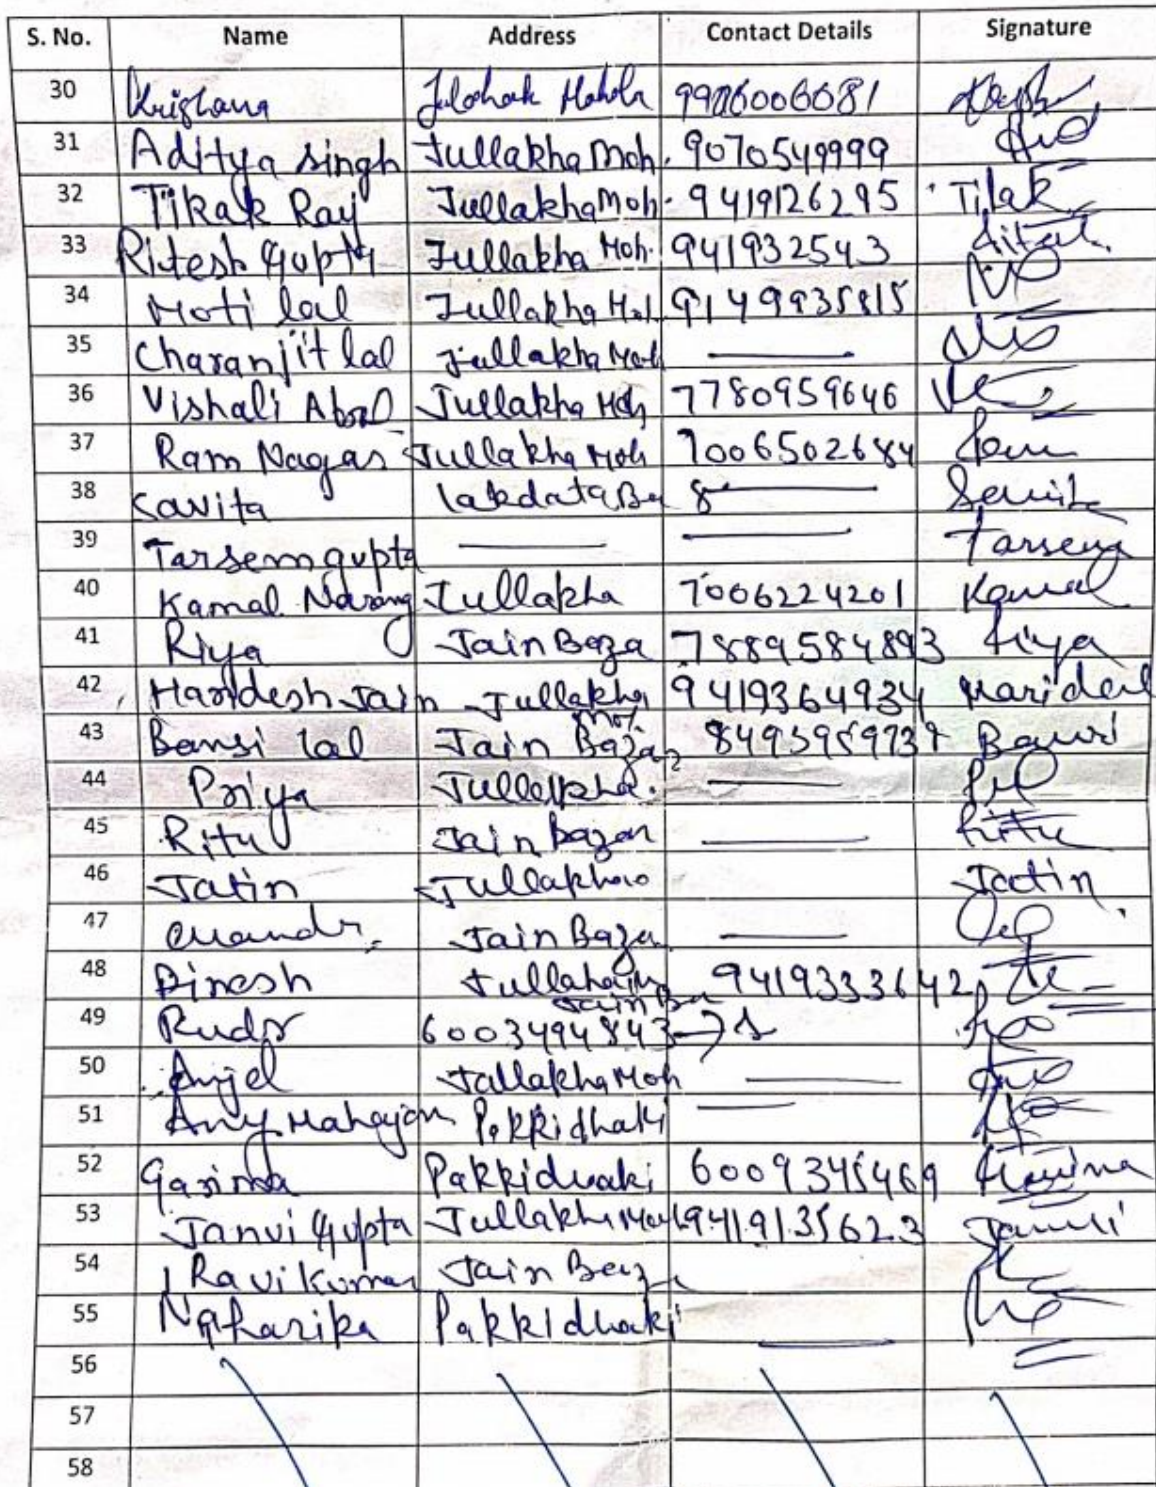 S. No. Name Address Contact Details Signature
30 Krishana Mohola 9906006681
31 Aditya Singh Jullakha Moh. 9070549999
32 Tikak Raj Jullakha Moh. 9419126295 Tilak
33 Ritesh Gupta Jullakha Moh. 941932543
34 Moti lal Jullakha Moh 9149935815
35 Charanjit lal Jullakha Moh —
36 Vishali Abrol Jullakha Moh 7780959646
37 Ram Nagar Jullakha Moh 7006502684
38 Savita lakdata Ba 8—
39 Tarsem gupta — — Tarsem
40 Kamal Narang Jullakha 7006224201 Kamal
41 Riya Jain Baza 7889584893 Riya
42 Hardesh Jain Jullakha Moh 9419364934
43 Bansi lal Jain Bazar Bansi
44 Priya Jullakha. —
45 Ritu Jain Bazar — Ritu
46 Jatin Jullakha Jatin
47 Jain Baza —
48 Dinesh 9419333642
49 Rudr Jain Ba 6003494843
50 Anjel Jallakha Moh —
51 Mahajan Pakkidhaki —
52 Garima Pakkidhaki 6009345469 Garima
53 Janvi Gupta Jullakha Moh 9419135623 Janvi
54 Ravi Kumar Jain Baza
55 Niharika Pakkidhaki —
56
57
58